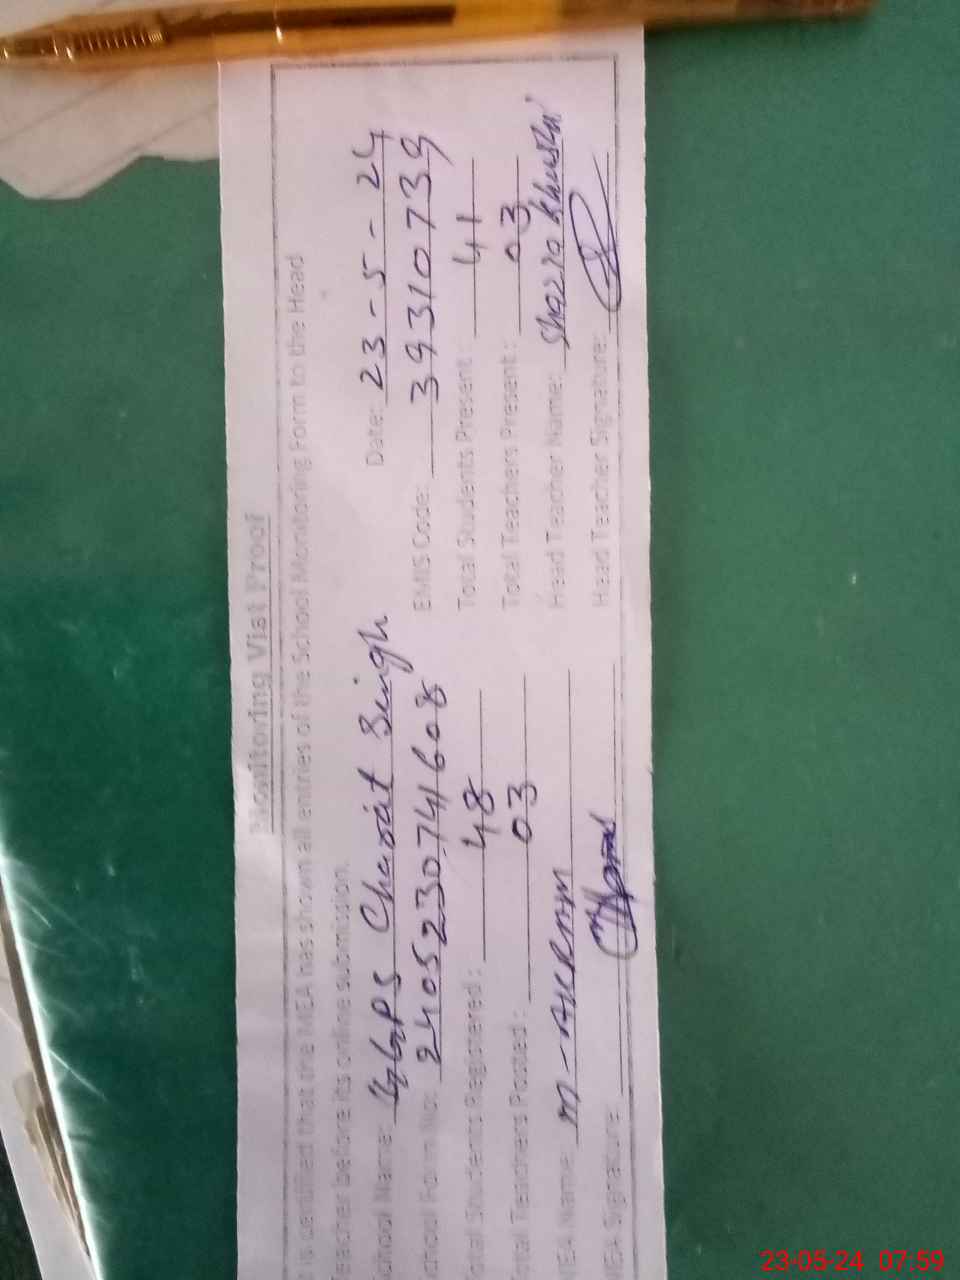 Monitoring Visit Proof
It is certified that the MEA has shown all entries of the School Monitoring Form to the Head
Teacher before its online submission.
School Name: GGPS Charat Singh Date: 23-5-24
School Form No: 2405230741608 EMIS Code: 39310739
Total Students Registered: 48 Total Students Present: 41
Total Teachers Posted: 03 Total Teachers Present: 03
MEA Name: M-AKRAM Head Teacher Name: Shazia Khurshid
MEA Signature: Head Teacher Signature:
23-05-24 07:59